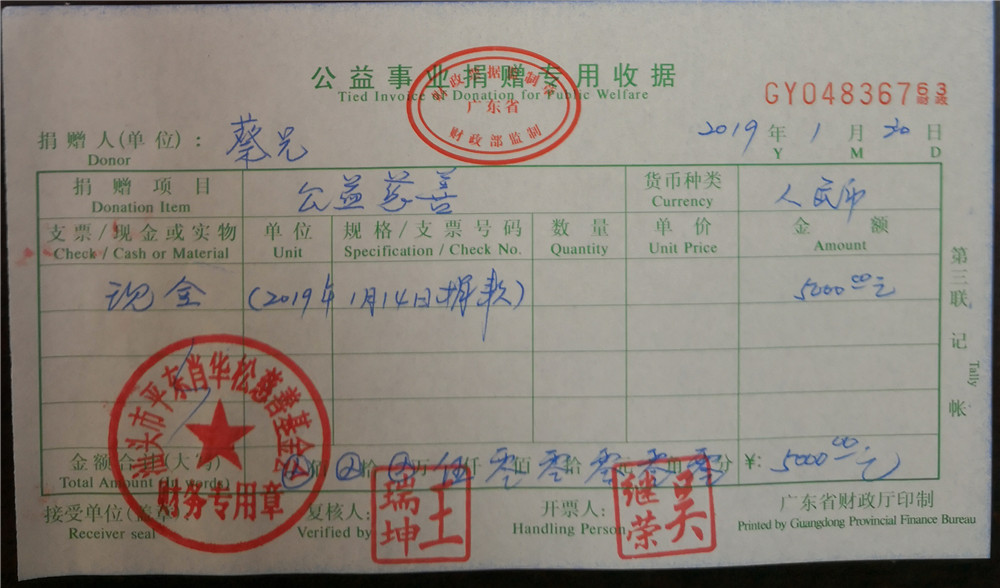 公益事业捐赠专用收据
Tied Invoice of Donation for Public Welfare
财政票据监制章
广东省
财政部监制
GY04836763
财政
捐赠人(单位): 蔡兄
Donor
2019年1月20日
Y M D
捐赠项目 公益慈善 货币种类 人民币
Donation Item Currency
支票/现金或实物 单位 规格/支票号码 数量 单价 金额
Check / Cash or Material Unit Specification / Check No. Quantity Unit Price Amount
现金 (2019年1月14日捐款) 5000.00元
金额合计(大写) 佰 拾 万伍仟零佰零拾零元零角零分 ¥: 5000.00元
Total Amount (In words)
接受单位(盖章) 复核人: 开票人: 广东省财政厅印制
Receiver seal Verified by Handling Person Printed by Guangdong Provincial Finance Bureau
汕头市平东肖华松慈善基金会
财务专用章
王瑞坤
吴继荣
第三联 记帐
Tally